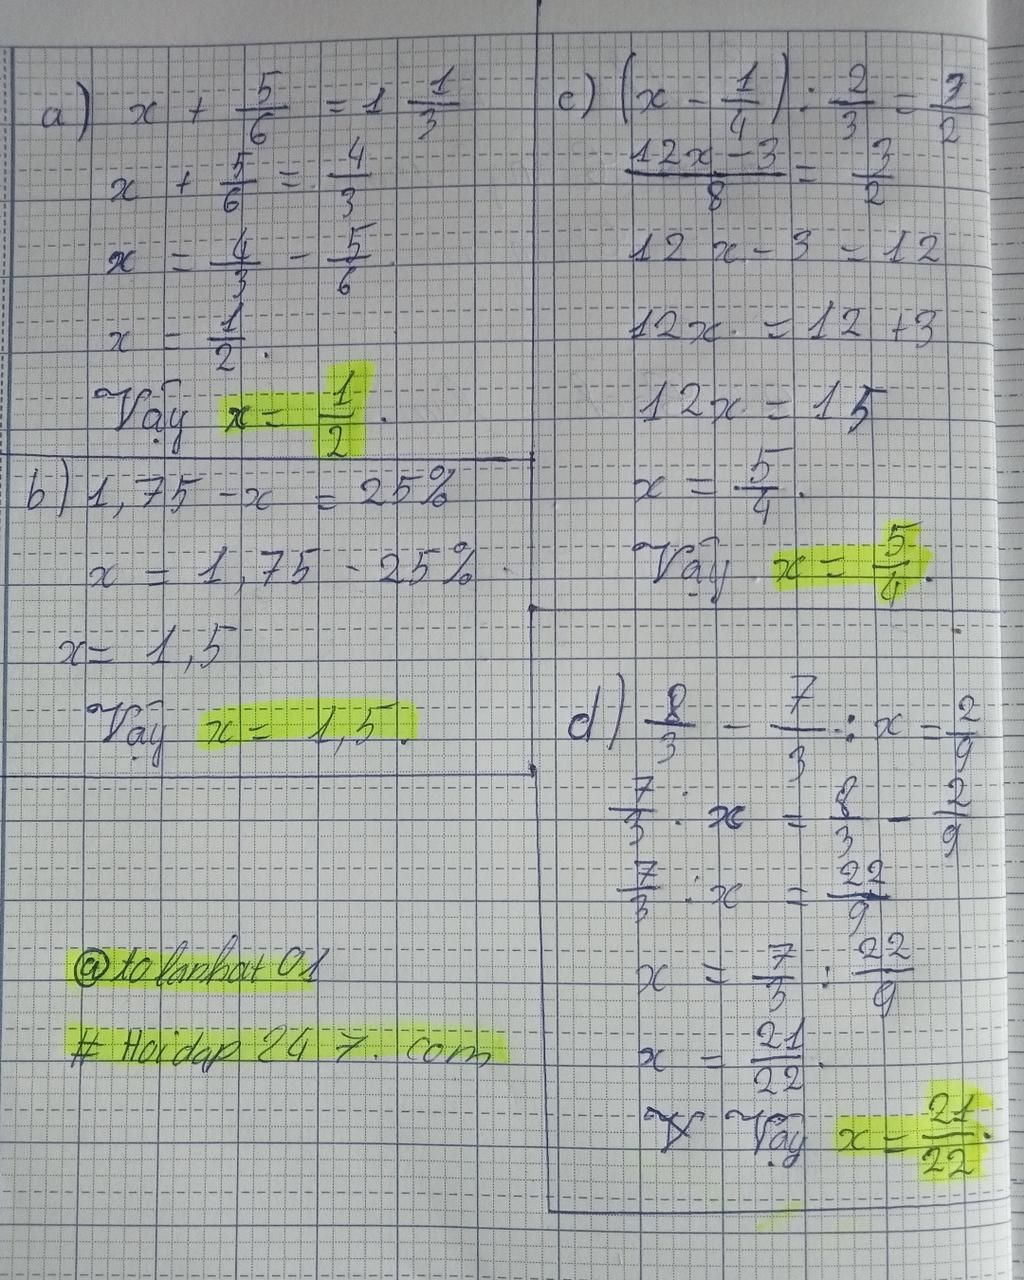 a) x + 5/6 = 1 1/3
x + 5/6 = 4/3
x = 4/3 - 5/6
x = 1/2.
Vậy x = 1/2.
b) 1,75 - x = 25%
x = 1,75 - 25%
x = 1,5
Vậy x = 1,5.
@tolanhat01
# Hoidap 247. com
c) (x - 1/4) : 2/3 = 3/2
12x - 3 / 8 = 3/2
12x - 3 = 12
12x = 12 + 3
12x = 15
x = 5/4.
Vậy x = 5/4.
d) 8/3 - 7/3 : x = 2/9
7/3 : x = 8/3 - 2/9
7/3 : x = 22/9
x = 7/3 : 22/9
x = 21/22.
Vậy x = 21/22.